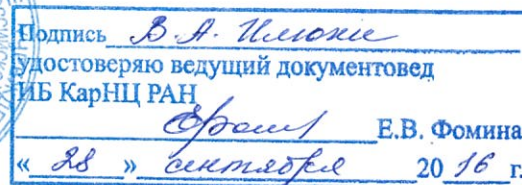 Подпись В.А. Илюхи
удостоверяю ведущий документовед
ИБ КарНЦ РАН
Е.В. Фомина
« 28 » сентября 20 16 г.